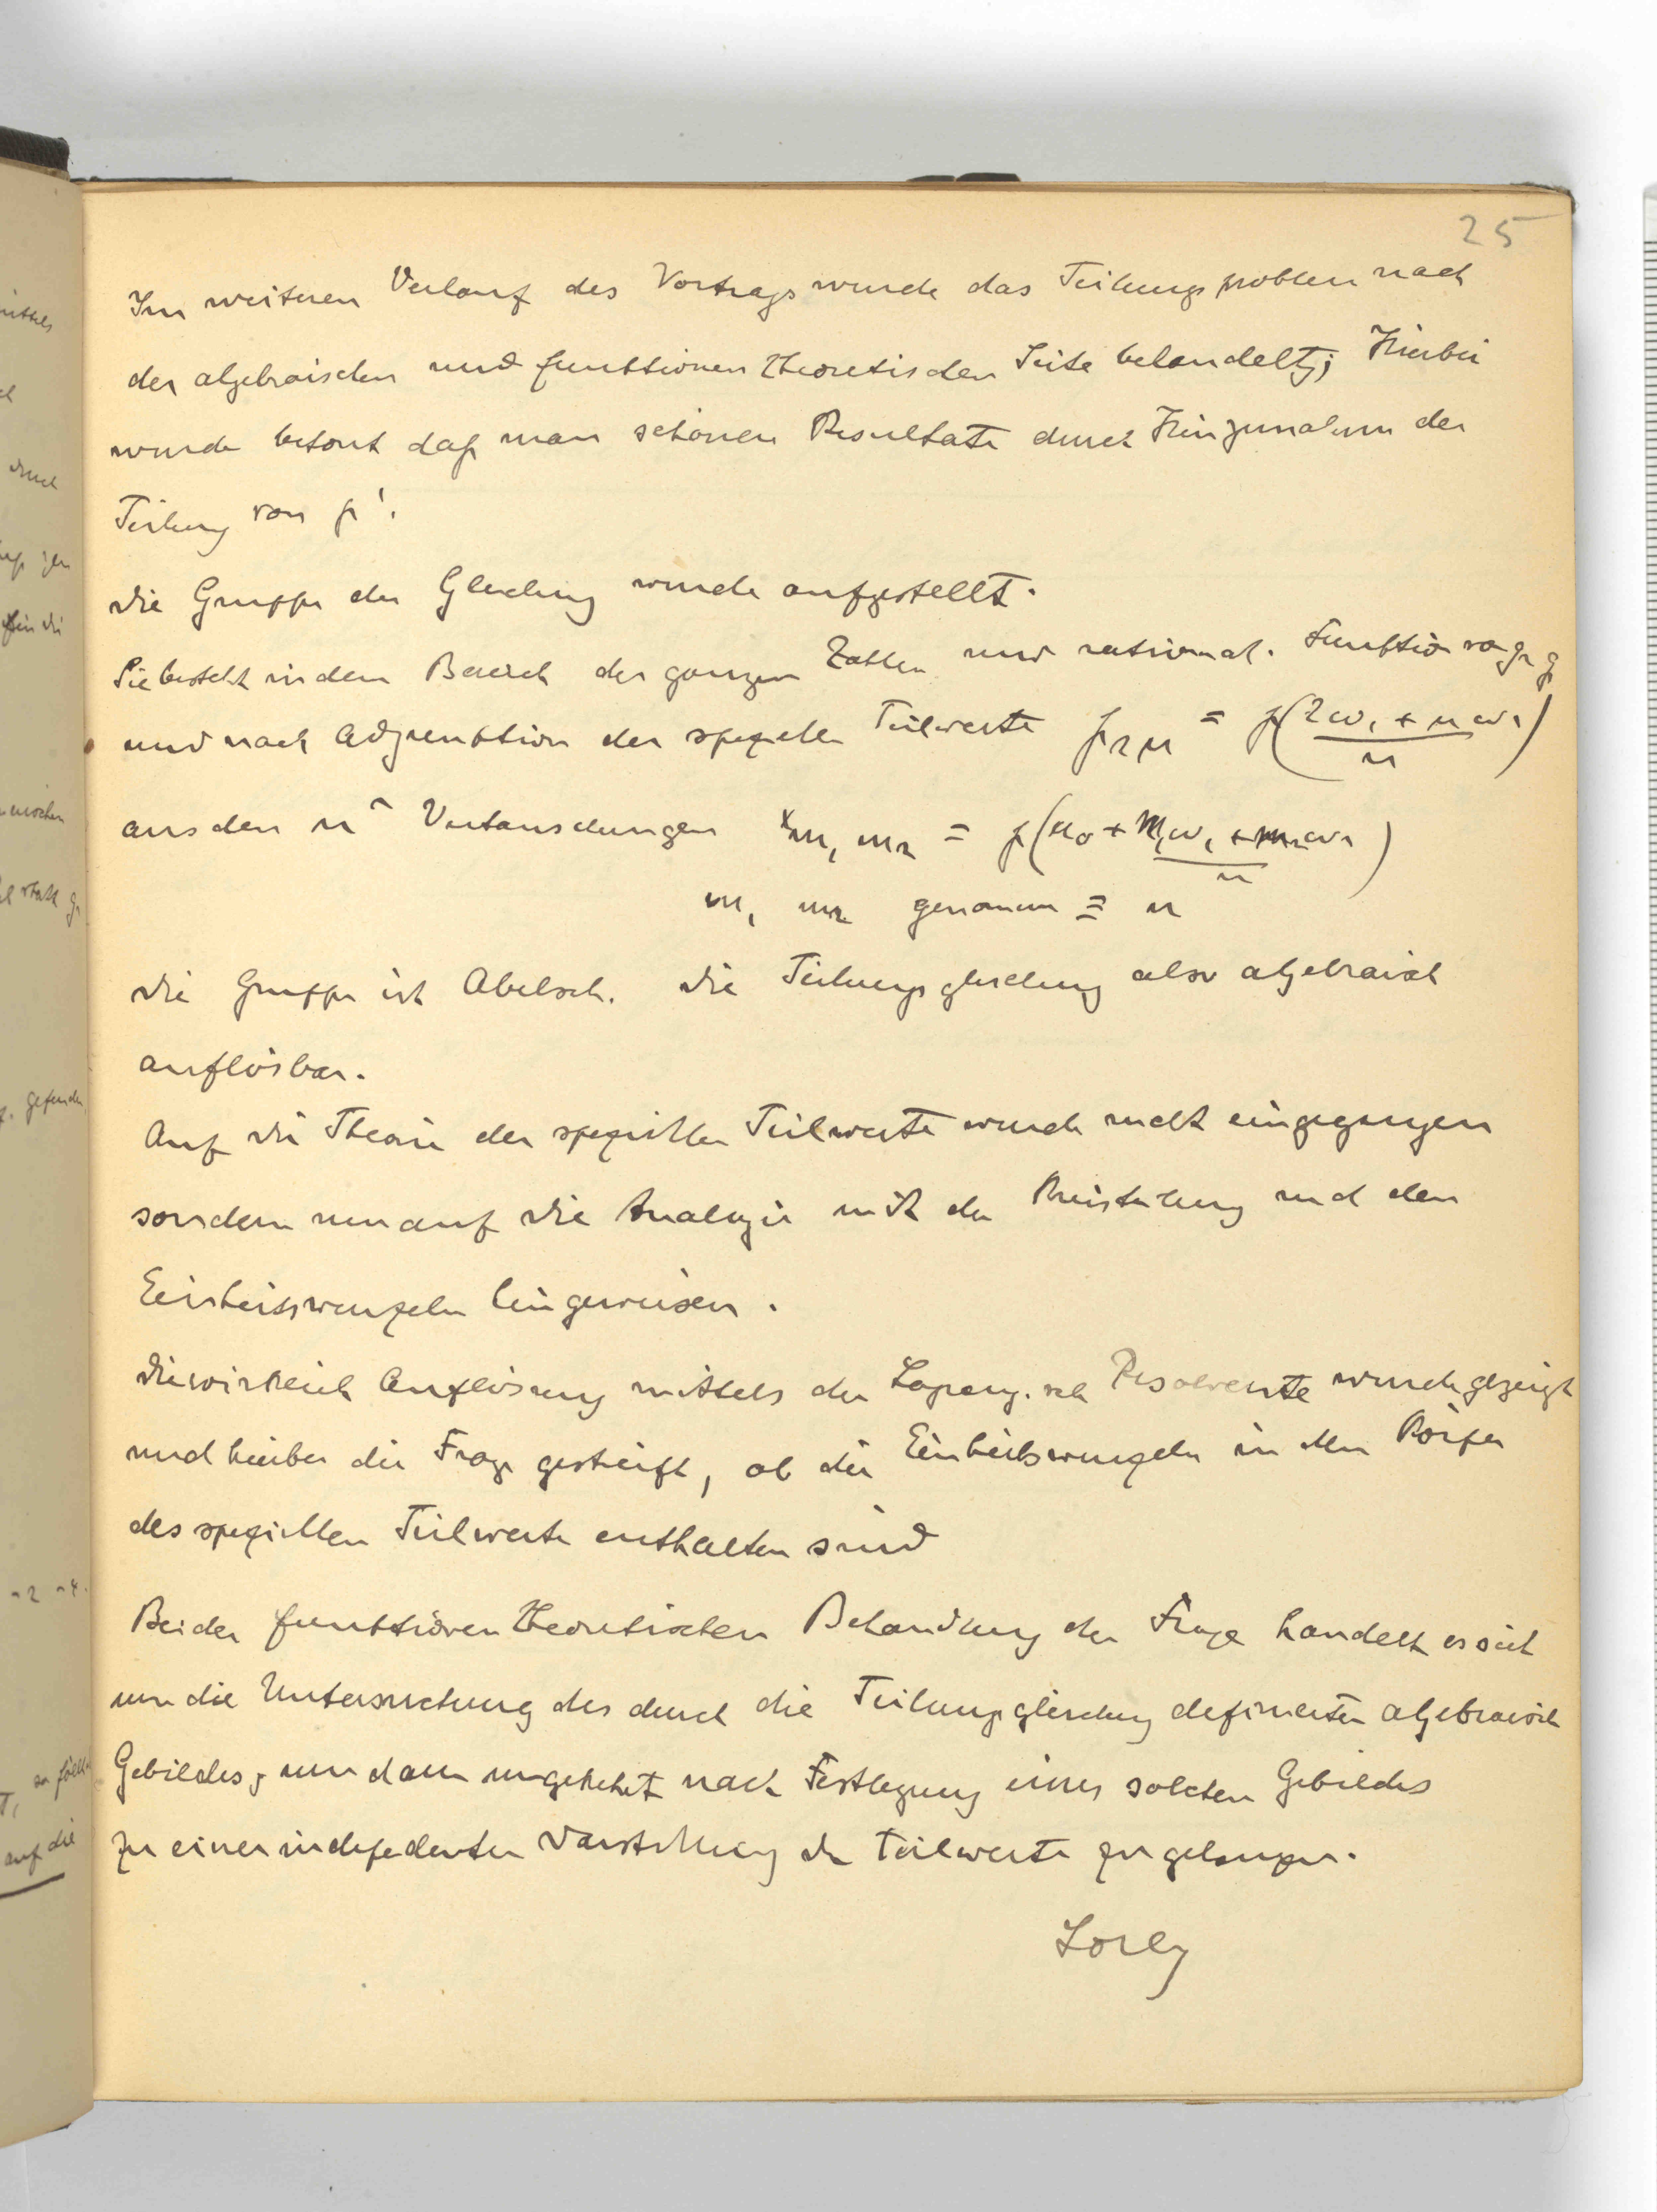 25
Im weiteren Verlauf des Vortrags wurde das Teilungsproblem nach
der algebraischen und funktionentheoretischen Seite behandelt; Hierbei
wurde betont daß man schönere Resultate durch Hinzunahme der
Teilung von ℘'.
Die Gruppe der Gleichung wurde aufgestellt.
Sie besteht in dem Bereich der ganzen Zahlen und rational. Funktion von g₂ g₃
und nach Adjunktion der speziellen Teilwerte ℘λμ = ℘(λω₁ + μω₂ / n)
aus den n² Vertauschungen x m₁ m₂ = ℘(u₀ + m₁ω₁ + m₂ω₂ / n)
m₁ m₂ genomm ≡ n
Die Gruppe ist Abelsch. Die Teilungsgleichung also algebraisch
auflösbar.
Auf die Theorie der speziellen Teilwerte wurde nicht eingegangen
sondern nur auf die Analogie mit der Kreisteilung und den
Einheitswurzeln hingewiesen.
Die wirklich Auflösung mittels der Lagrang.sch Resolvente wurde gezeigt
und hierbei die Frage gestreift, ob die Einheitswurzeln in dem Körper
des speziellen Teilwerte enthalten sind
Bei der funktionentheoretischen Behandlung der Frage handelt es sich
um die Untersuchung des durch die Teilungsgleichung definierten algebraisch
Gebildes, um dann umgekehrt nach Festlegung eines solchen Gebildes
zu einer independenten Darstellung der Teilwerte zu gelangen.
Lorey